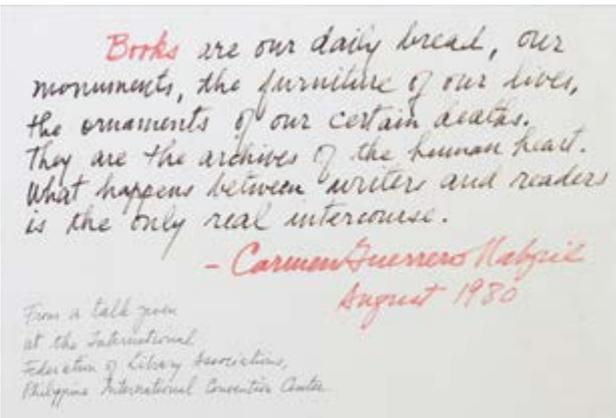 Books are our daily bread, our
monuments, the furniture of our lives,
the ornaments of our certain deaths.
They are the archives of the human heart.
What happens between writers and readers
is the only real intercourse.
- Carmen Guerrero Nakpil
August 1980
From a talk given
at the International
Federation of Library Associations,
Philippine International Convention Center